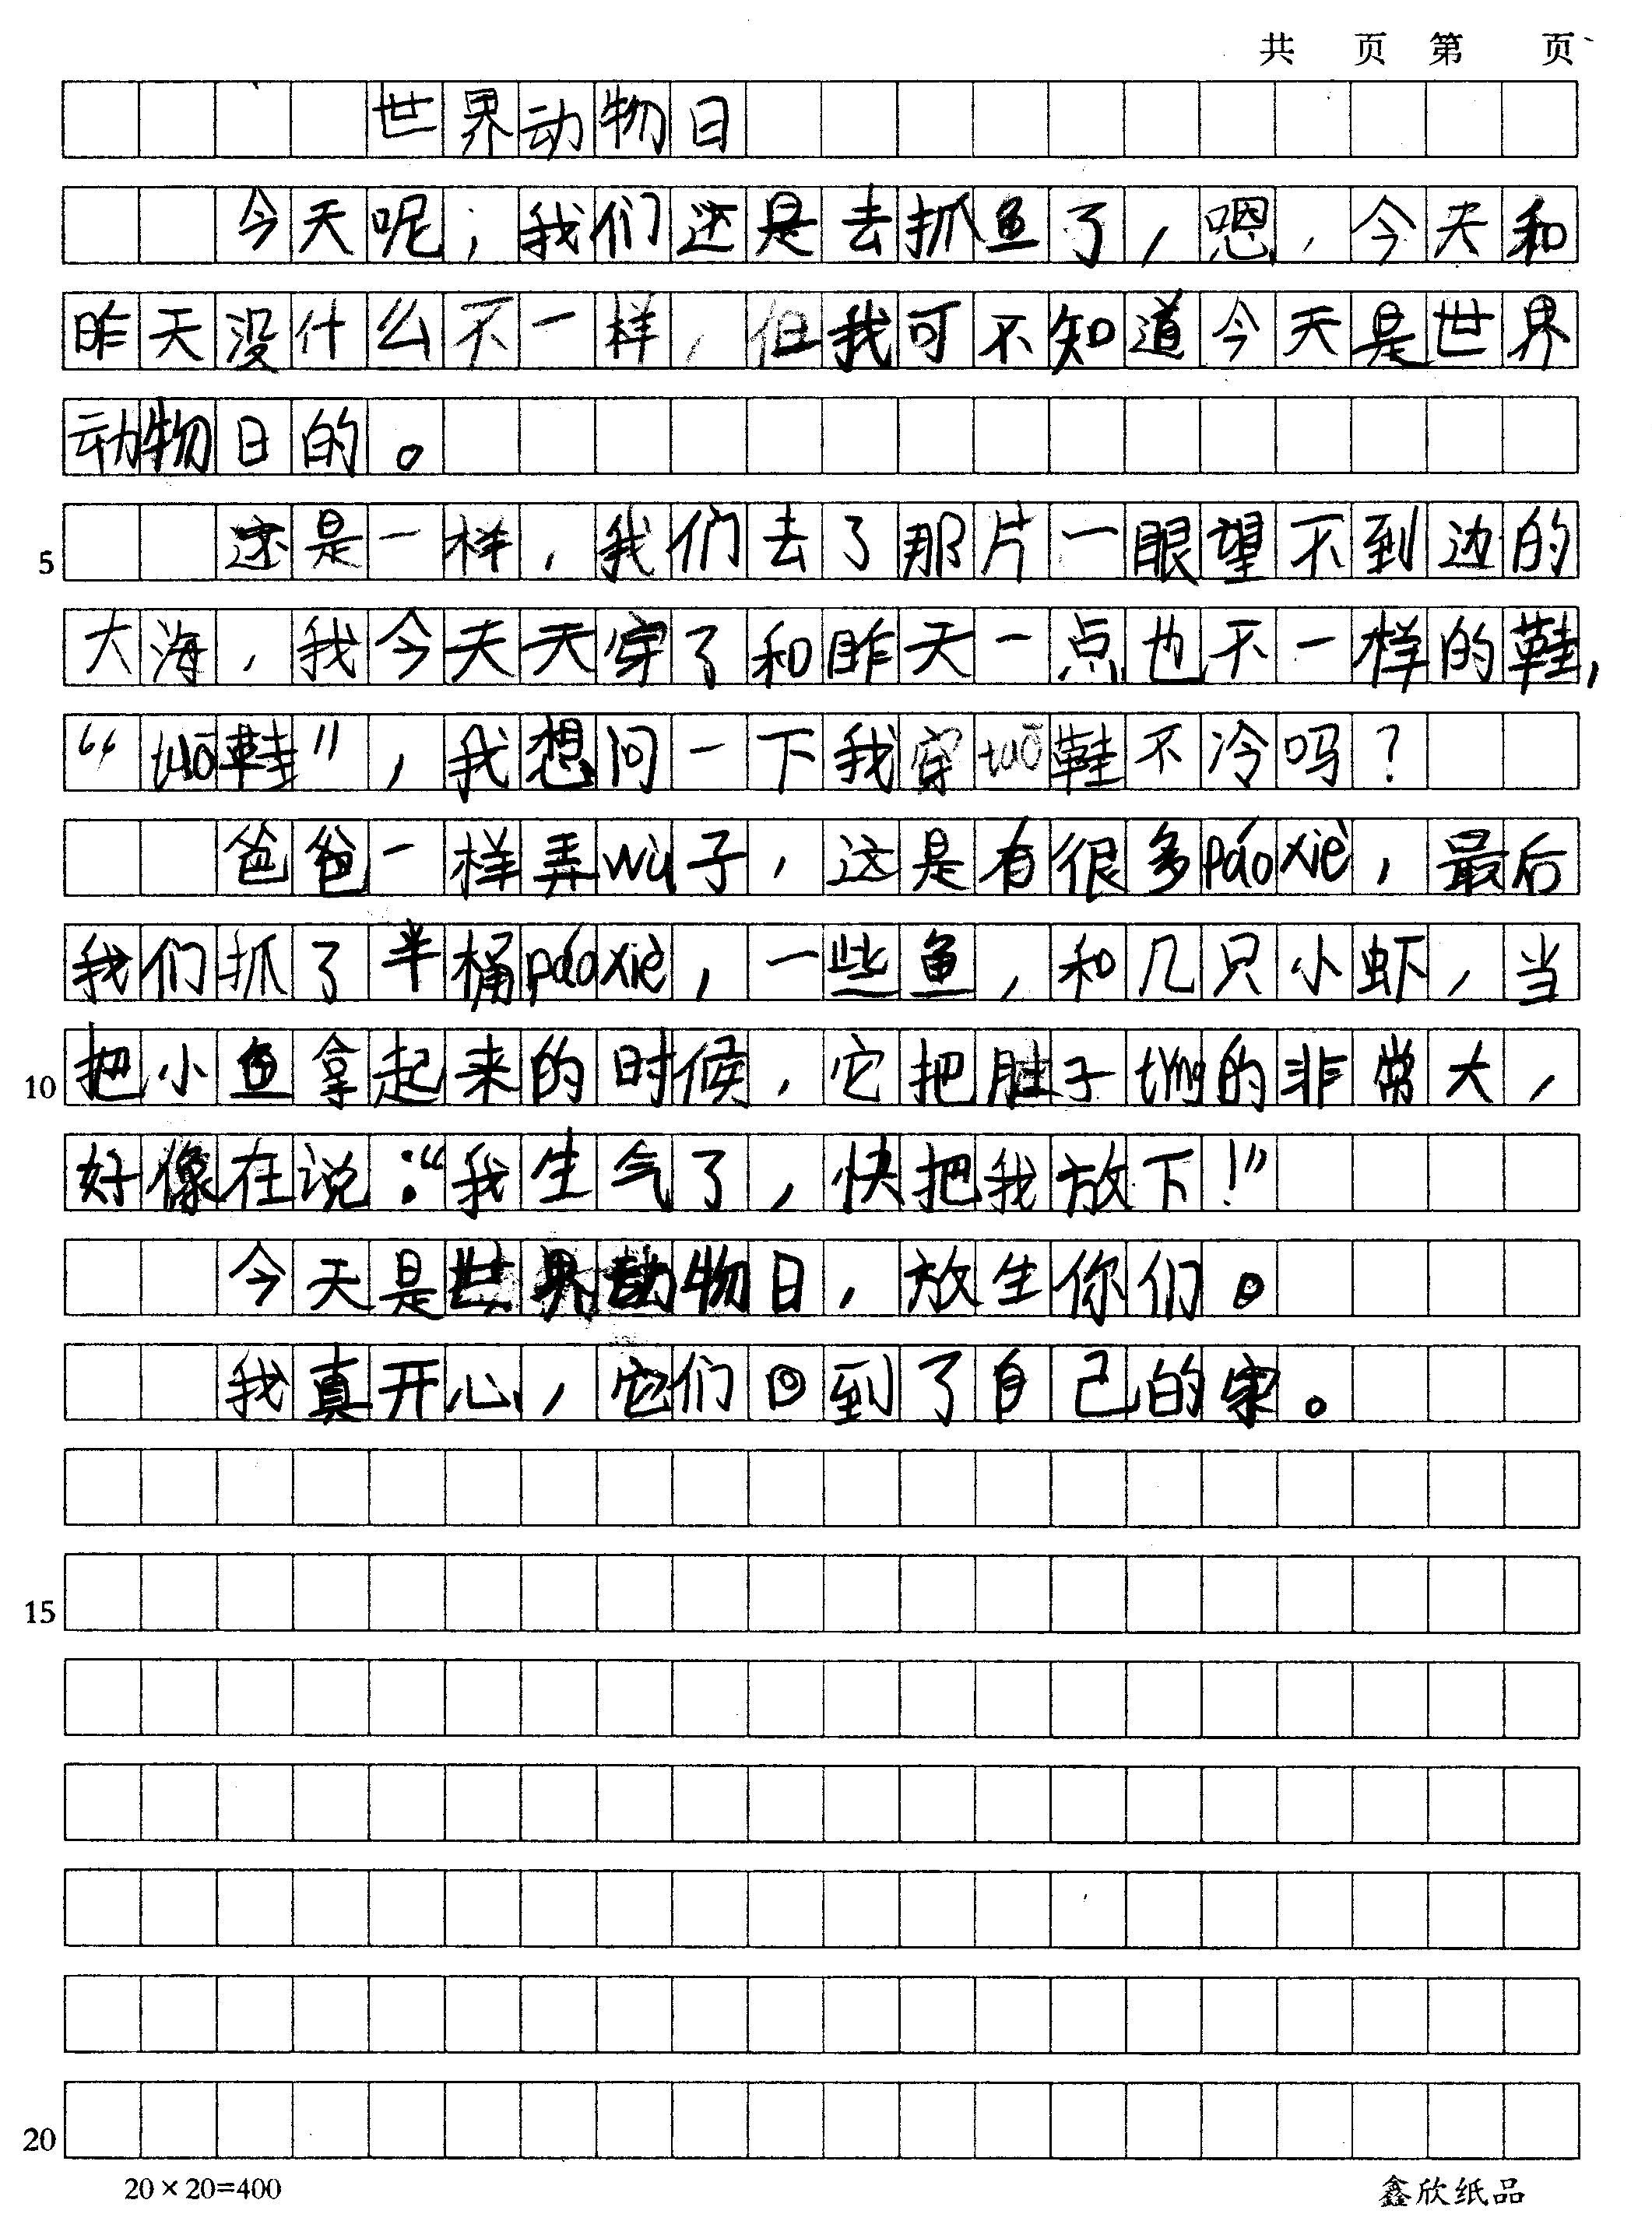 共 页 第 页
世界动物日
今天呢，我们还是去抓鱼了，嗯，今天和
昨天没什么不一样，但我可不知道今天是世界
动物日的。
5 还是一样，我们去了那片一眼望不到边的
大海，我今天天穿了和昨天一点也不一样的鞋，
“tuō鞋”，我想问一下我穿tuō鞋不冷吗？
爸爸一样弄wù子，这是有很多páoxiè，最后
我们抓了半桶páoxiè，一些鱼，和几只小虾，当
10 把小鱼拿起来的时候，它把肚子tǐng的非常大，
好像在说：“我生气了，快把我放下！”
今天是世界动物日，放生你们。
我真开心，它们回到了自己的家。
15
20
20×20=400 鑫欣纸品